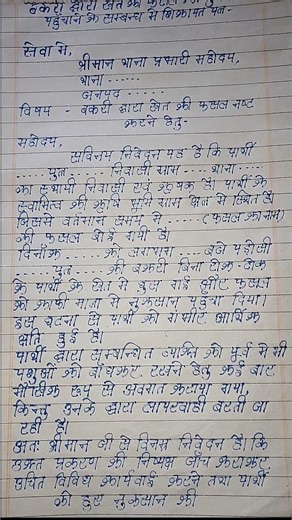 बकरी द्वारा खेत की फसल नष्ट
पहुंचाने के सम्बन्ध में शिकायत पत्र-
सेवा में,
श्रीमान थाना प्रभारी महोदय,
थाना ......
जनपद ......
विषय - बकरी द्वारा खेत की फसल नष्ट
करने हेतु-
महोदय,
सविनय निवेदन यह है कि प्रार्थी
...... पुत्र ...... निवासी ग्राम ...... थाना ......
का स्थायी निवासी एवं कृषक है। प्रार्थी के
स्वामित्व की कृषि भूमि ग्राम क्षेत्र में स्थित है।
जिसमें वर्तमान समय में ...... (फसल का नाम)
की फसल बोई गयी है।
दिनांक ...... को लगभग ...... बजे पड़ोसी
...... पुत्र ...... की बकरी बिना रोक-टोक
के प्रार्थी के खेत में घुस गई और फसल
को काफी मात्रा में नुकसान पहुंचा दिया।
इस घटना से प्रार्थी को गंभीर आर्थिक
क्षति हुई है।
प्रार्थी द्वारा सम्बन्धित व्यक्ति को पूर्व में भी
पशुओं को बांधकर रखने हेतु कई बार
मौखिक रूप से अवगत कराया गया,
किन्तु उनके द्वारा लापरवाही बरती जा
रही है।
अतः श्रीमान जी से विनम्र निवेदन है। कि
उक्त प्रकरण की निष्पक्ष जाँच कराकर
उचित विधिक कार्यवाई करने तथा प्रार्थी
को हुए नुकसान की